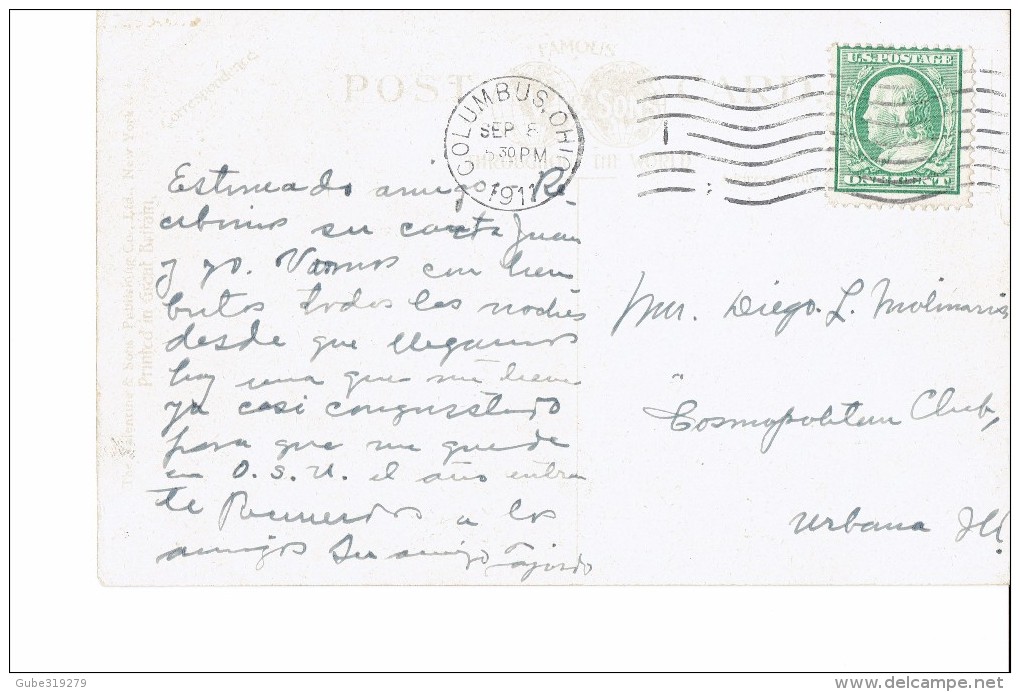 Correspondence
FAMOUS
POST CARD
SONS
THROUGHOUT THE WORLD
COLUMBUS, OHIO
SEP 8
30 PM
1911
U.S. POSTAGE
The Valentine & Sons Publishing Co., Ltd., New York
Printed in Great Britain.
Estimado amigo: Re-
cibimos su carta Juan
y yo. Vamos con
todos las noches
desde que llegamos
hay una que me tiene
ya casi conquistado
para que me quede
en O.S.U. el año entran
te Recuerdos a los
amigos Su amigo Fajardo
Mr. Diego. L. Molinari
Cosmopolitan Club,
Urbana Ill.
Gube319279
www.delcampe.net